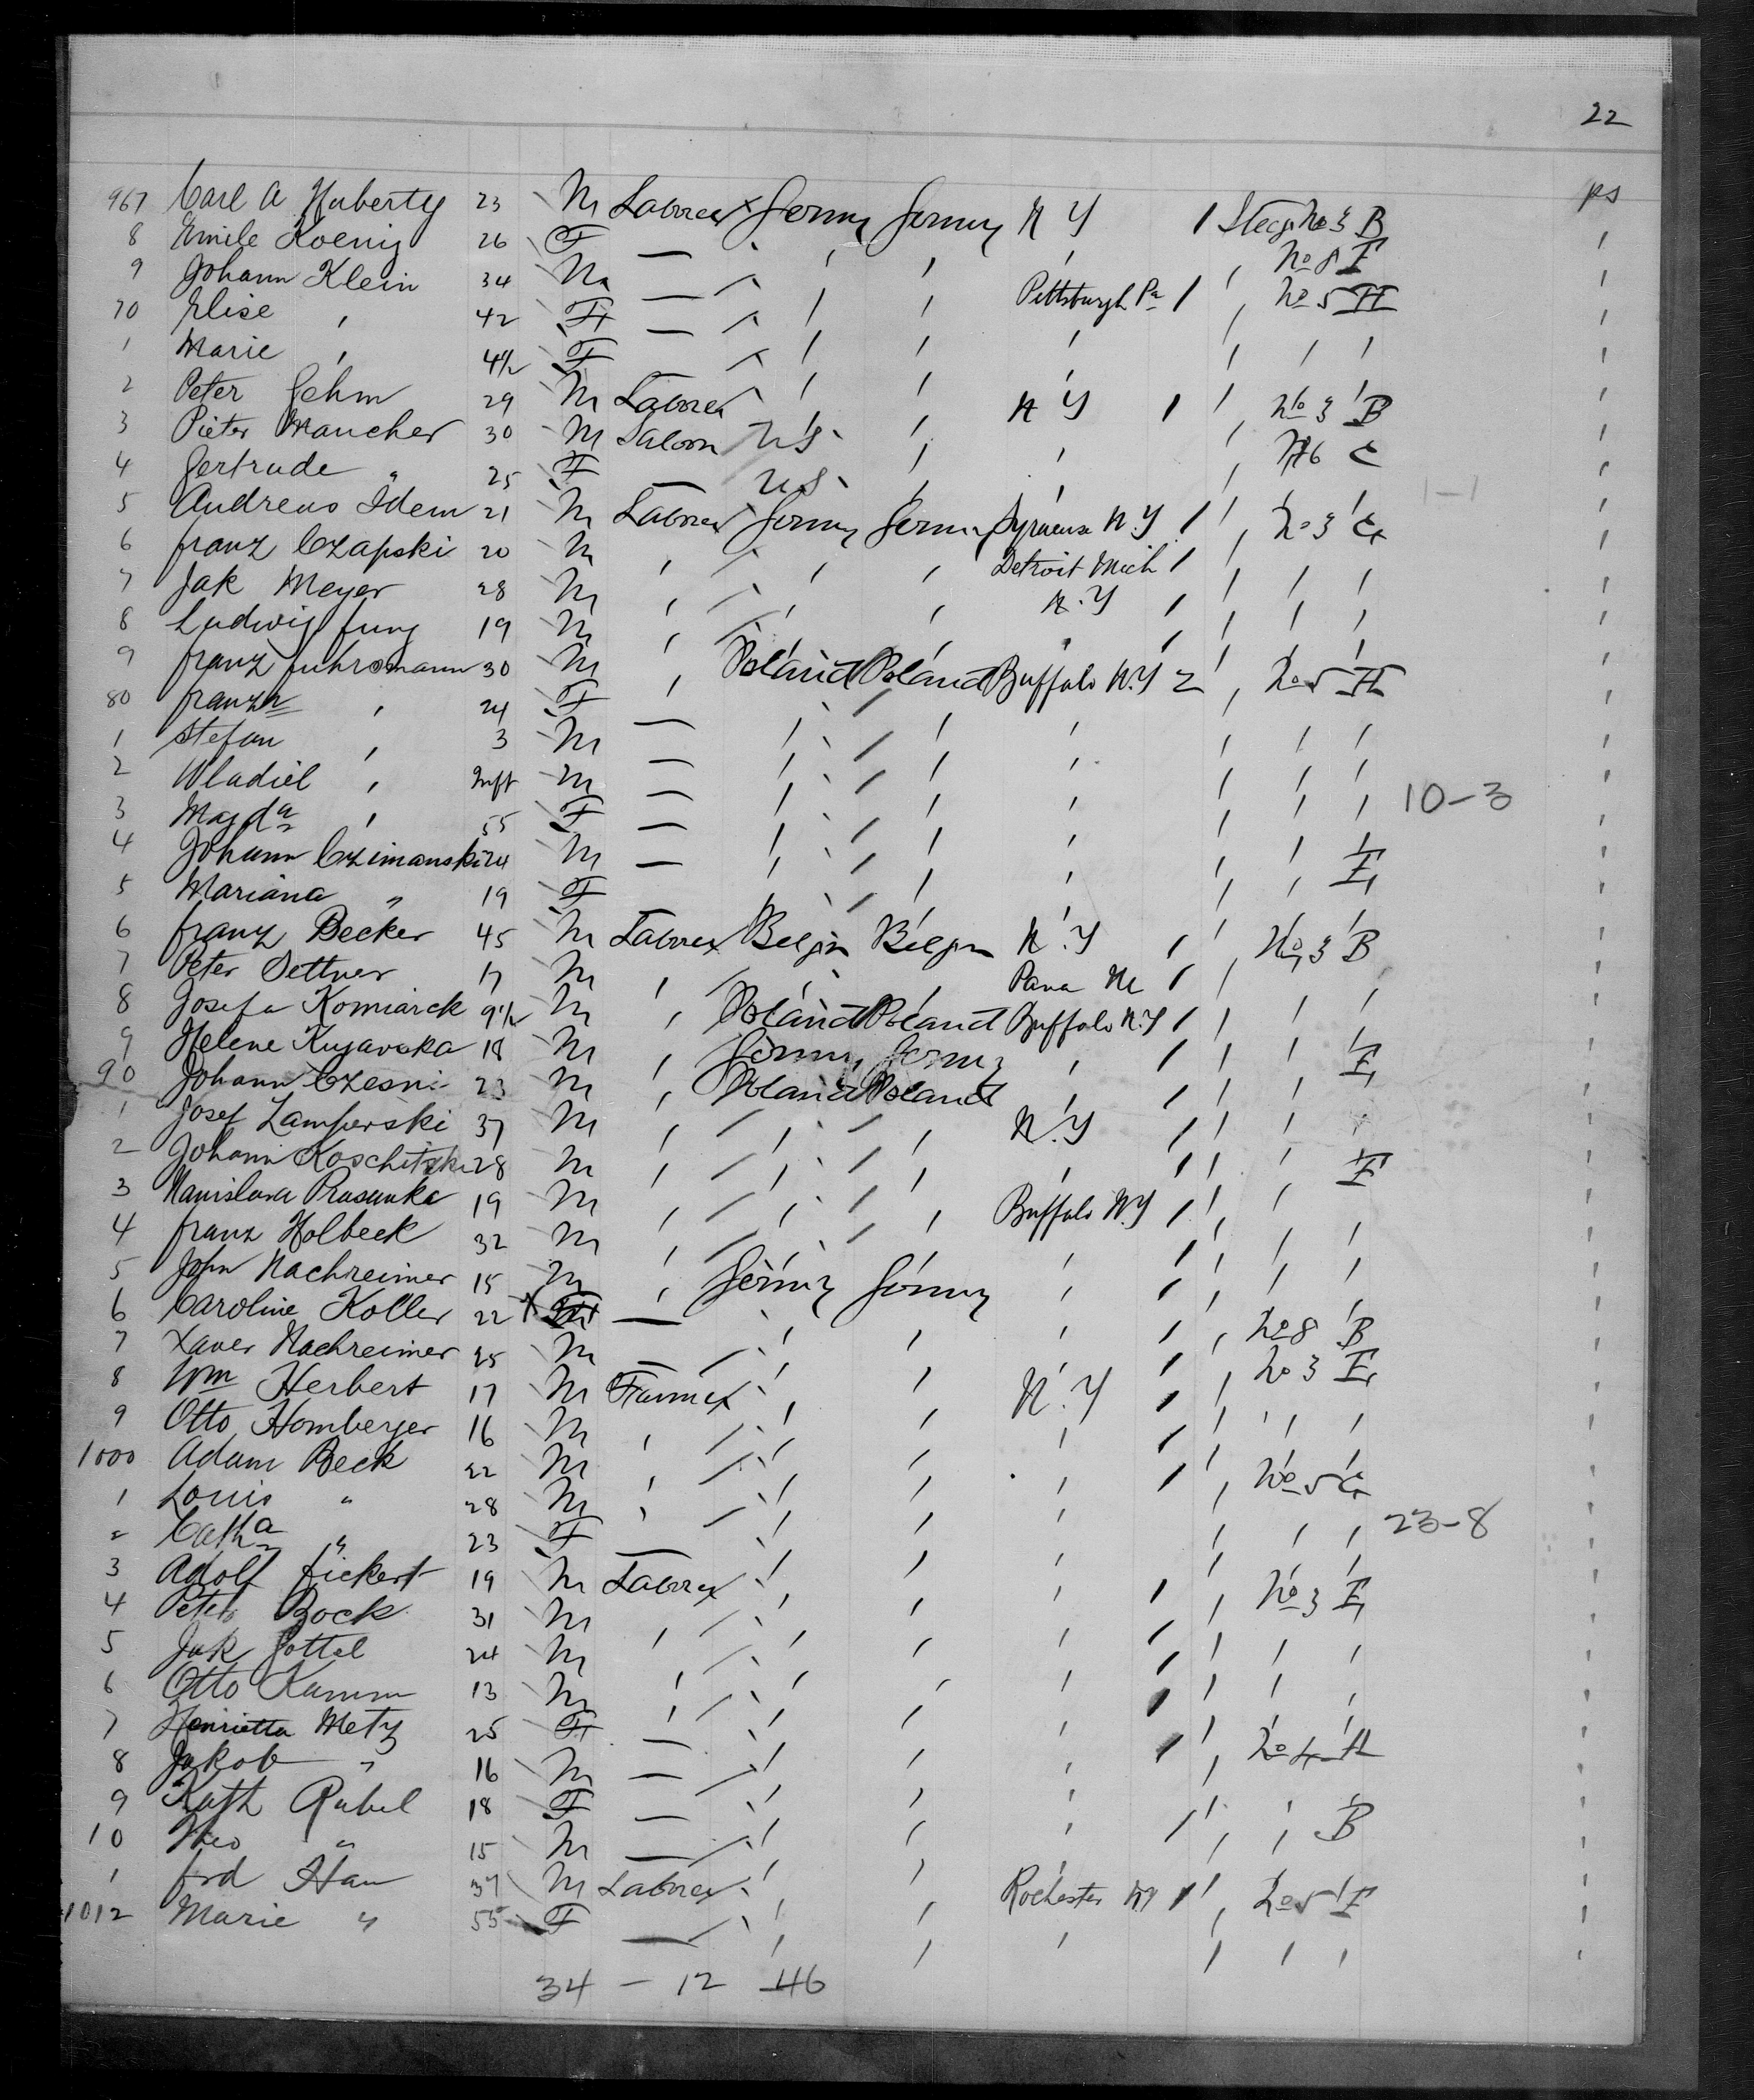 22
967 Carl A Huberty 23 M Laborer Germy Germy N Y 1 Steeg No 3 B ps
8 Emile Koenig 26 F — ' ' ' ' No 8 E '
9 Johann Klein 34 M — ' ' Pittsburgh Pa 1 ' No 5 H '
70 Elise ' 42 F — ' ' ' ' ' ' '
1 Marie ' 4 1/2 F ' ' ' ' ' ' '
2 Peter Gehm 29 M Laborer ' ' N Y 1 ' No 3 B '
3 Pieter Mancher 30 M Saloon U S ' ' ' No 6 C '
4 Gertrude " 25 F — U S ' ' ' ' ' 1-1
5 Andreas Idem 21 M Laborer Germy Germy Syracuse N.Y 1 ' No 3 C '
6 Franz Czapski 20 M ' ' ' Detroit Mich 1 ' ' ' '
7 Jak Meyer 28 M ' ' ' N.Y 1 ' ' ' '
8 Ludwig Jung 19 M ' ' ' " 1 ' ' ' '
9 Franz Fuhromann 30 M ' Poland Poland Buffalo N.Y 2 ' No 5 H '
80 Franza ' 24 F — ' ' ' ' ' ' '
1 Stefan ' 3 M — ' ' ' ' ' ' '
2 Wladiel ' Inft M — ' ' ' ' ' ' 10-3 '
3 Magda ' 55 F — ' ' ' ' ' ' '
4 Johann Czimanski 24 M — ' ' ' ' ' E '
5 Mariana " 19 F ' ' ' ' ' ' '
6 Franz Becker 45 M Laborer Belgm Belgm N.Y 1 ' No 3 B '
7 Peter Dettner 17 M ' ' ' Pana 1 ' ' ' '
8 Josefa Komiarck 9 1/2 M ' Poland Poland Buffalo N.Y 1 ' ' ' '
9 Helene Kujawska 18 M ' Germy Germy ' 1 ' ' E '
90 Johann Czesni 23 M ' Poland Poland ' 1 ' ' ' '
1 Josef Zamperski 37 M ' ' ' N.Y 1 ' ' ' '
2 Johann Koschitzki 28 M ' ' ' ' 1 ' ' E '
3 Prasunka 19 M ' ' ' Buffalo N.Y 1 ' ' ' '
4 Franz Holbeck 32 M ' ' ' ' 1 ' ' ' '
5 John Nachreimer 15 M ' Germy Germy ' 1 ' ' ' '
6 Caroline Koller 22 F — ' ' ' 1 ' No 8 B '
7 Xaver Nachreimer 25 M — ' ' ' 1 ' No 3 E '
8 Wm Herbert 17 M Farmer ' ' N.Y 1 ' ' ' '
9 Otto Homberger 16 M ' ' ' ' 1 ' ' ' '
1000 Adam Beck 22 M ' ' ' ' 1 ' No 5 C '
1 Louis " 28 M ' ' ' ' ' ' ' 23-8 '
2 Catha " 23 F — ' ' ' ' ' ' '
3 Adolf Fickert 19 M Laborer ' ' ' 1 ' No 3 E '
4 Peter Bock 31 M ' ' ' ' 1 ' ' ' '
5 Jak Gottel 24 M ' ' ' ' 1 ' ' ' '
6 Otto Kamm 13 M ' ' ' ' 1 ' ' ' '
7 Henrietta Metz 25 F — ' ' ' 1 ' No 4 H '
8 Jakob " 16 M — ' ' ' ' ' ' '
9 Kath Rubel 18 F — ' ' ' 1 ' ' B '
10 Theo " 15 M — ' ' ' ' ' ' '
1 Frd Hau 37 M Laborer ' ' Rochester NY 1 ' No 5 E '
1012 Marie " 55 F — ' ' ' ' ' ' '
34 - 12 46